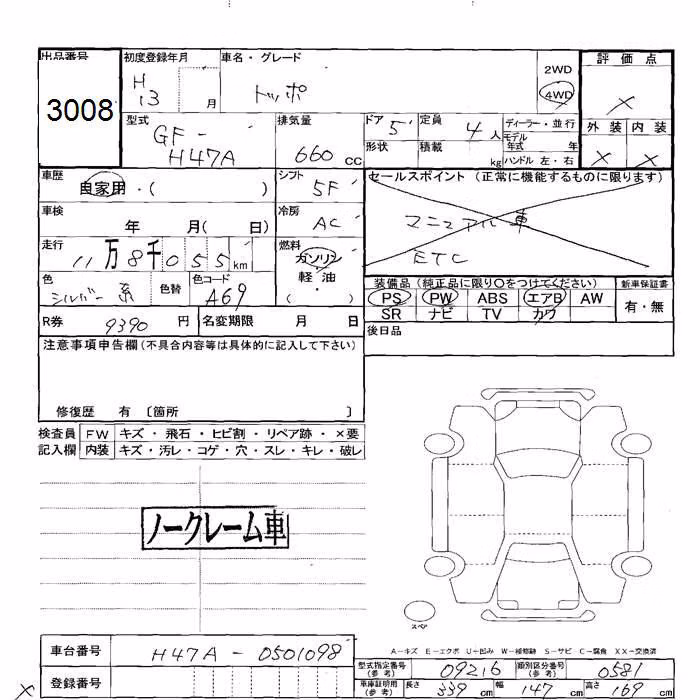 出品番号 初度登録年月 車名・グレード 評価点
3008 H 13 月 トッポ 2WD 4WD ×
型式 排気量 ドア 5 定員 4 人 ディーラー・並行 外装 内装
GF- H47A 660 CC 形状 積載 kg モデル年式 年 ハンドル 左・右 × ×
車歴 自家用・( ) シフト 5F セールスポイント (正常に機能するものに限ります)
車検 年 月( 日) 冷房 AC マニュアル車
走行 11万8千055km 燃料 ガソリン・軽油・( ) ETC
色 シルバー系 色替 色コード A69 装備品 (純正品に限り○をつけてください) 新車保証書
PS PW ABS エアB AW 有・無
R券 9390 円 名変期限 月 日 SR ナビ TV カワ
注意事項申告欄(不具合内容等は具体的に記入して下さい) 後日品
修復歴 有 〔箇所 〕
検査員 FW キズ・飛石・ヒビ割・リペア跡・×要
記入欄 内装 キズ・汚レ・コゲ・穴・スレ・キレ・破レ
ノークレーム車
スペア
A-キズ E-エクボ U-凹み W-補修跡 S-サビ C-腐食 XX-交換済
車台番号 H47A-0501098 型式指定番号(参考) 09216 類別区分番号(参考) 0581
登録番号 車庫証明用(参考) 長さ 339 cm 幅 147 cm 高さ 169 cm
×